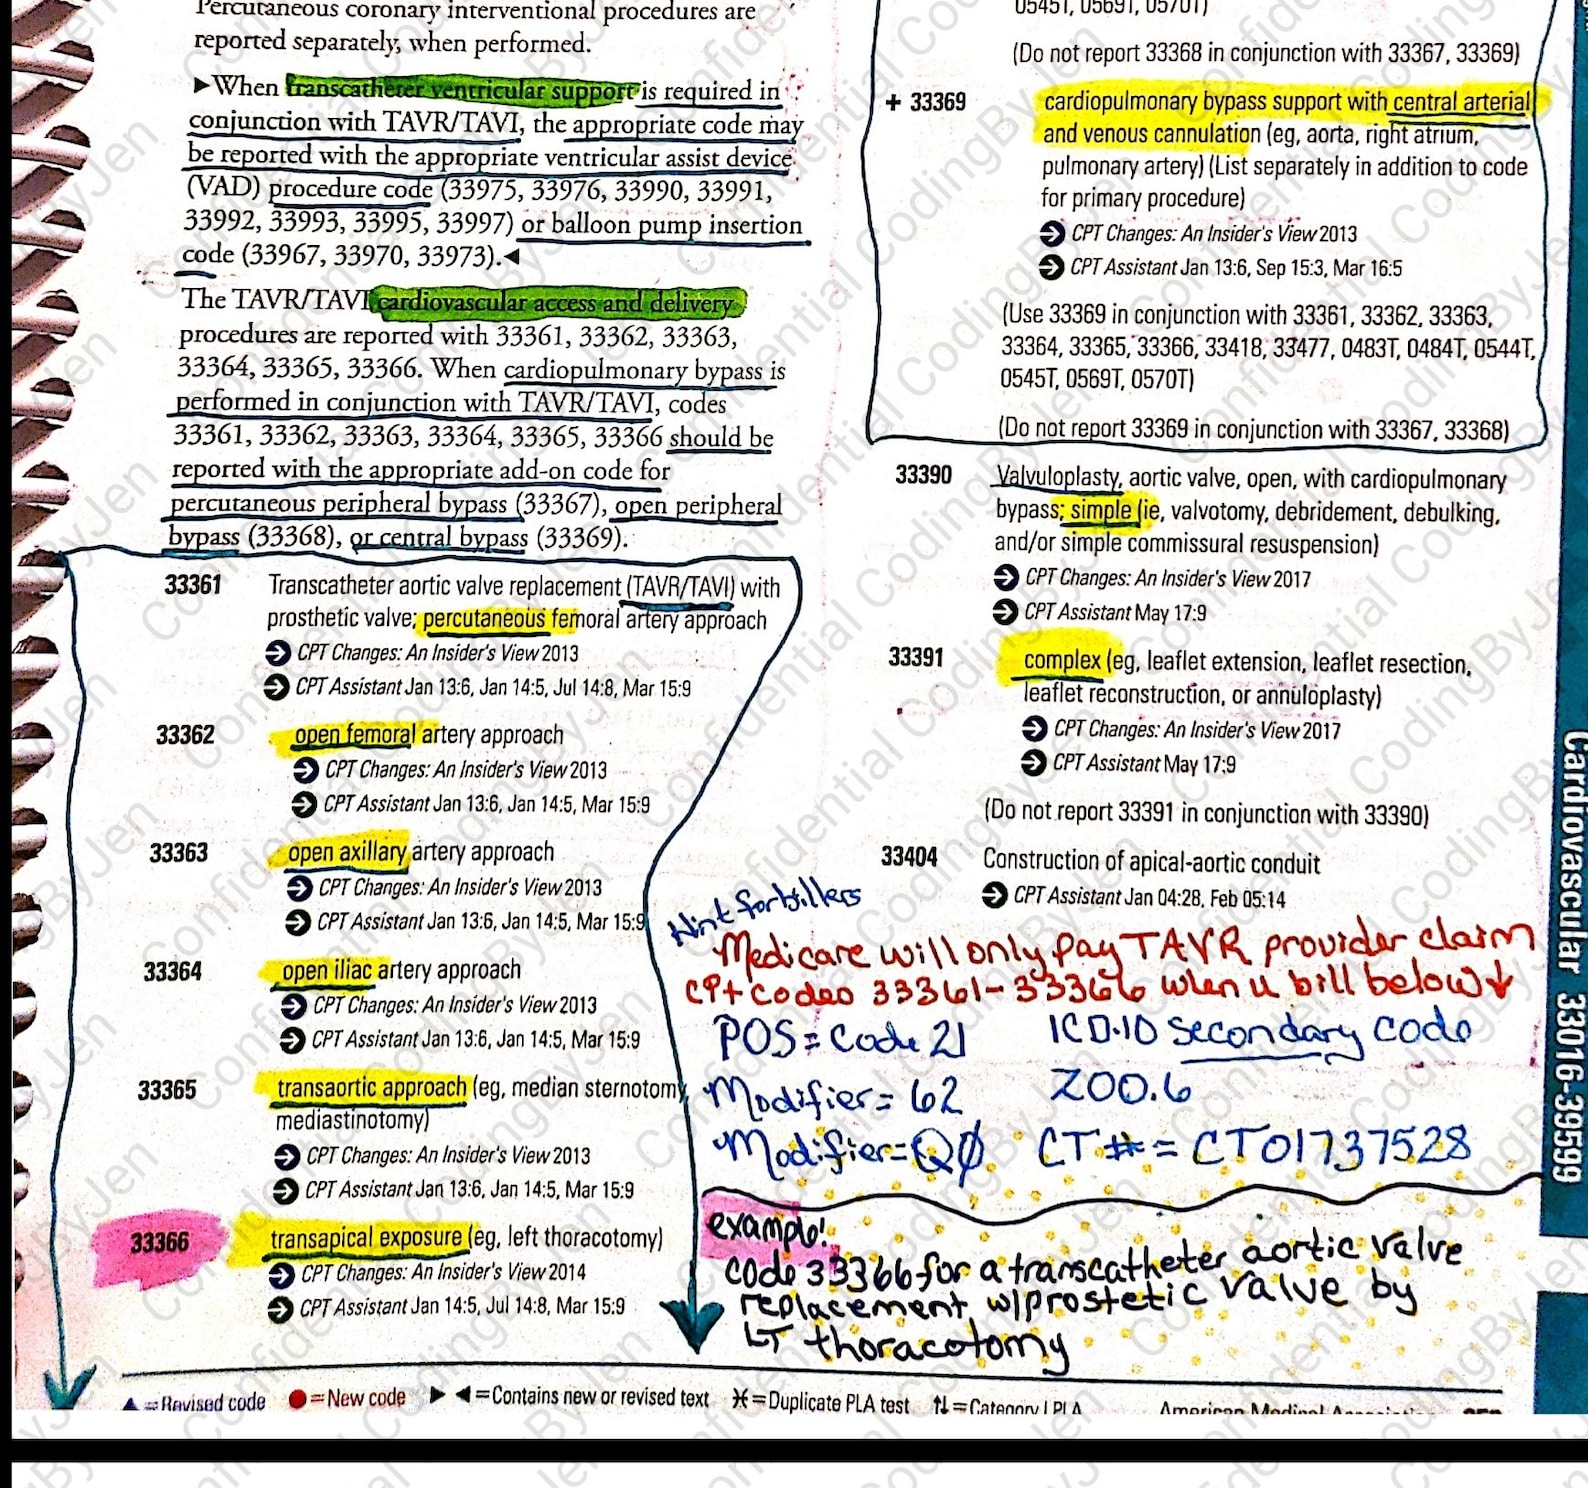 Percutaneous coronary interventional procedures are
reported separately, when performed.
►When transcatheter ventricular support is required in
conjunction with TAVR/TAVI, the appropriate code may
be reported with the appropriate ventricular assist device
(VAD) procedure code (33975, 33976, 33990, 33991,
33992, 33993, 33995, 33997) or balloon pump insertion
code (33967, 33970, 33973).◄
The TAVR/TAVI cardiovascular access and delivery
procedures are reported with 33361, 33362, 33363,
33364, 33365, 33366. When cardiopulmonary bypass is
performed in conjunction with TAVR/TAVI, codes
33361, 33362, 33363, 33364, 33365, 33366 should be
reported with the appropriate add-on code for
percutaneous peripheral bypass (33367), open peripheral
bypass (33368), or central bypass (33369).
33361 Transcatheter aortic valve replacement (TAVR/TAVI) with
prosthetic valve; percutaneous femoral artery approach
CPT Changes: An Insider's View 2013
CPT Assistant Jan 13:6, Jan 14:5, Jul 14:8, Mar 15:9
33362 open femoral artery approach
CPT Changes: An Insider's View 2013
CPT Assistant Jan 13:6, Jan 14:5, Mar 15:9
33363 open axillary artery approach
CPT Changes: An Insider's View 2013
CPT Assistant Jan 13:6, Jan 14:5, Mar 15:9
33364 open iliac artery approach
CPT Changes: An Insider's View 2013
CPT Assistant Jan 13:6, Jan 14:5, Mar 15:9
33365 transaortic approach (eg, median sternotomy,
mediastinotomy)
CPT Changes: An Insider's View 2013
CPT Assistant Jan 13:6, Jan 14:5, Mar 15:9
33366 transapical exposure (eg, left thoracotomy)
CPT Changes: An Insider's View 2014
CPT Assistant Jan 14:5, Jul 14:8, Mar 15:9
0545T, 0569T, 0570T)
(Do not report 33368 in conjunction with 33367, 33369)
+ 33369 cardiopulmonary bypass support with central arterial
and venous cannulation (eg, aorta, right atrium,
pulmonary artery) (List separately in addition to code
for primary procedure)
CPT Changes: An Insider's View 2013
CPT Assistant Jan 13:6, Sep 15:3, Mar 16:5
(Use 33369 in conjunction with 33361, 33362, 33363,
33364, 33365, 33366, 33418, 33477, 0483T, 0484T, 0544T,
0545T, 0569T, 0570T)
(Do not report 33369 in conjunction with 33367, 33368)
33390 Valvuloplasty, aortic valve, open, with cardiopulmonary
bypass; simple (ie, valvotomy, debridement, debulking,
and/or simple commissural resuspension)
CPT Changes: An Insider's View 2017
CPT Assistant May 17:9
33391 complex (eg, leaflet extension, leaflet resection,
leaflet reconstruction, or annuloplasty)
CPT Changes: An Insider's View 2017
CPT Assistant May 17:9
(Do not report 33391 in conjunction with 33390)
33404 Construction of apical-aortic conduit
CPT Assistant Jan 04:28, Feb 05:14
Hint for billers
Medicare will only pay TAVR provider claim
CPt codes 33361-33366 when u bill below↓
POS = Code 21 ICD.10 secondary code
Modifier = 62 Z00.6
Modifier = QØ CT# = CT01737528
example!
code 33366 for a transcatheter aortic valve
replacement w/prostetic valve by
LT thoracotomy
Cardiovascular 33016-39599
▲=Revised code ●=New code ► ◄=Contains new or revised text ⚹=Duplicate PLA test ↑↓=Category I PLA American Medical
Confidential CodingByJen